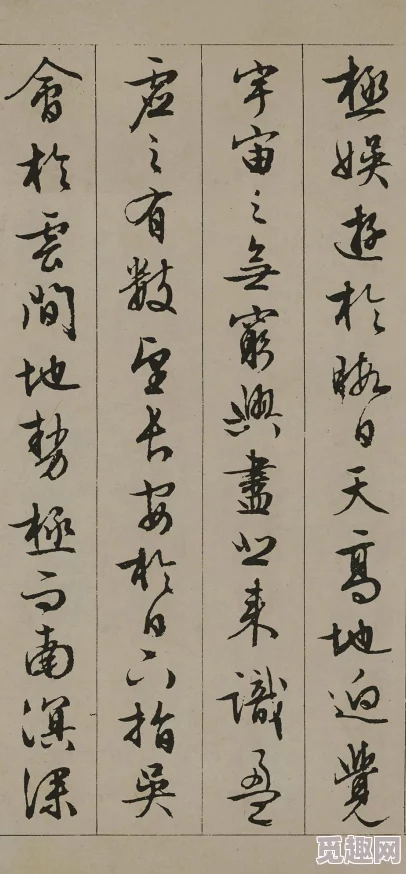 極娛遊於暇日天高地迥覺
宇宙之無窮興盡悲來識盈
虛之有數望長安於日下指吳
會於雲間地勢極而南溟深
觅趣网